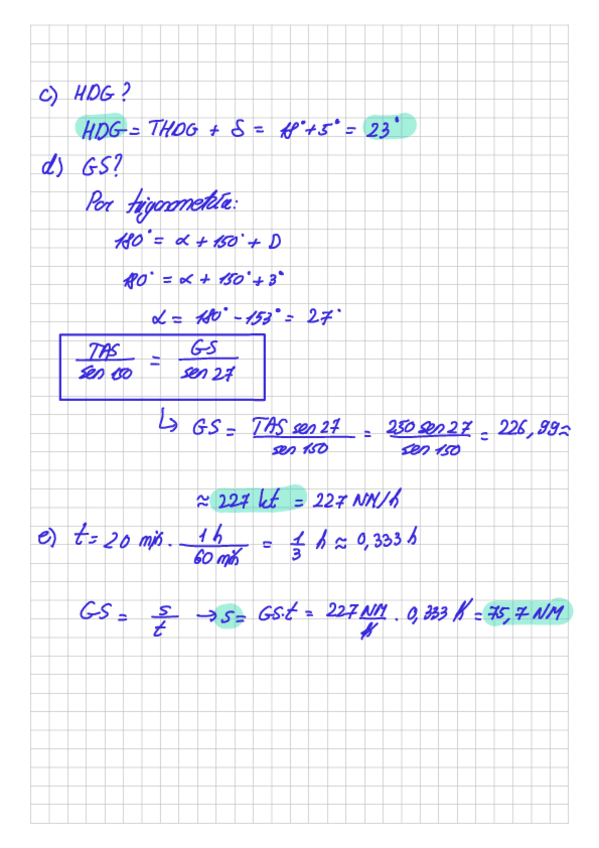 c) HDG?
HDG = THDG + δ = 18° + 5° = 23°
d) GS?
Por trigonometría:
180° = α + 150° + D
180° = α + 150° + 3°
α = 180° - 153° = 27°
TAS / sen 150 = GS / sen 27
↳ GS = TAS sen 27 / sen 150 = 250 sen 27 / sen 150 = 226,99 ≈
≈ 227 kt = 227 NM/h
e) t = 20 min · 1 h / 60 min = 1/3 h ≈ 0,333 h
GS = s / t → s = GS·t = 227 NM/h · 0,333 h = 75,7 NM